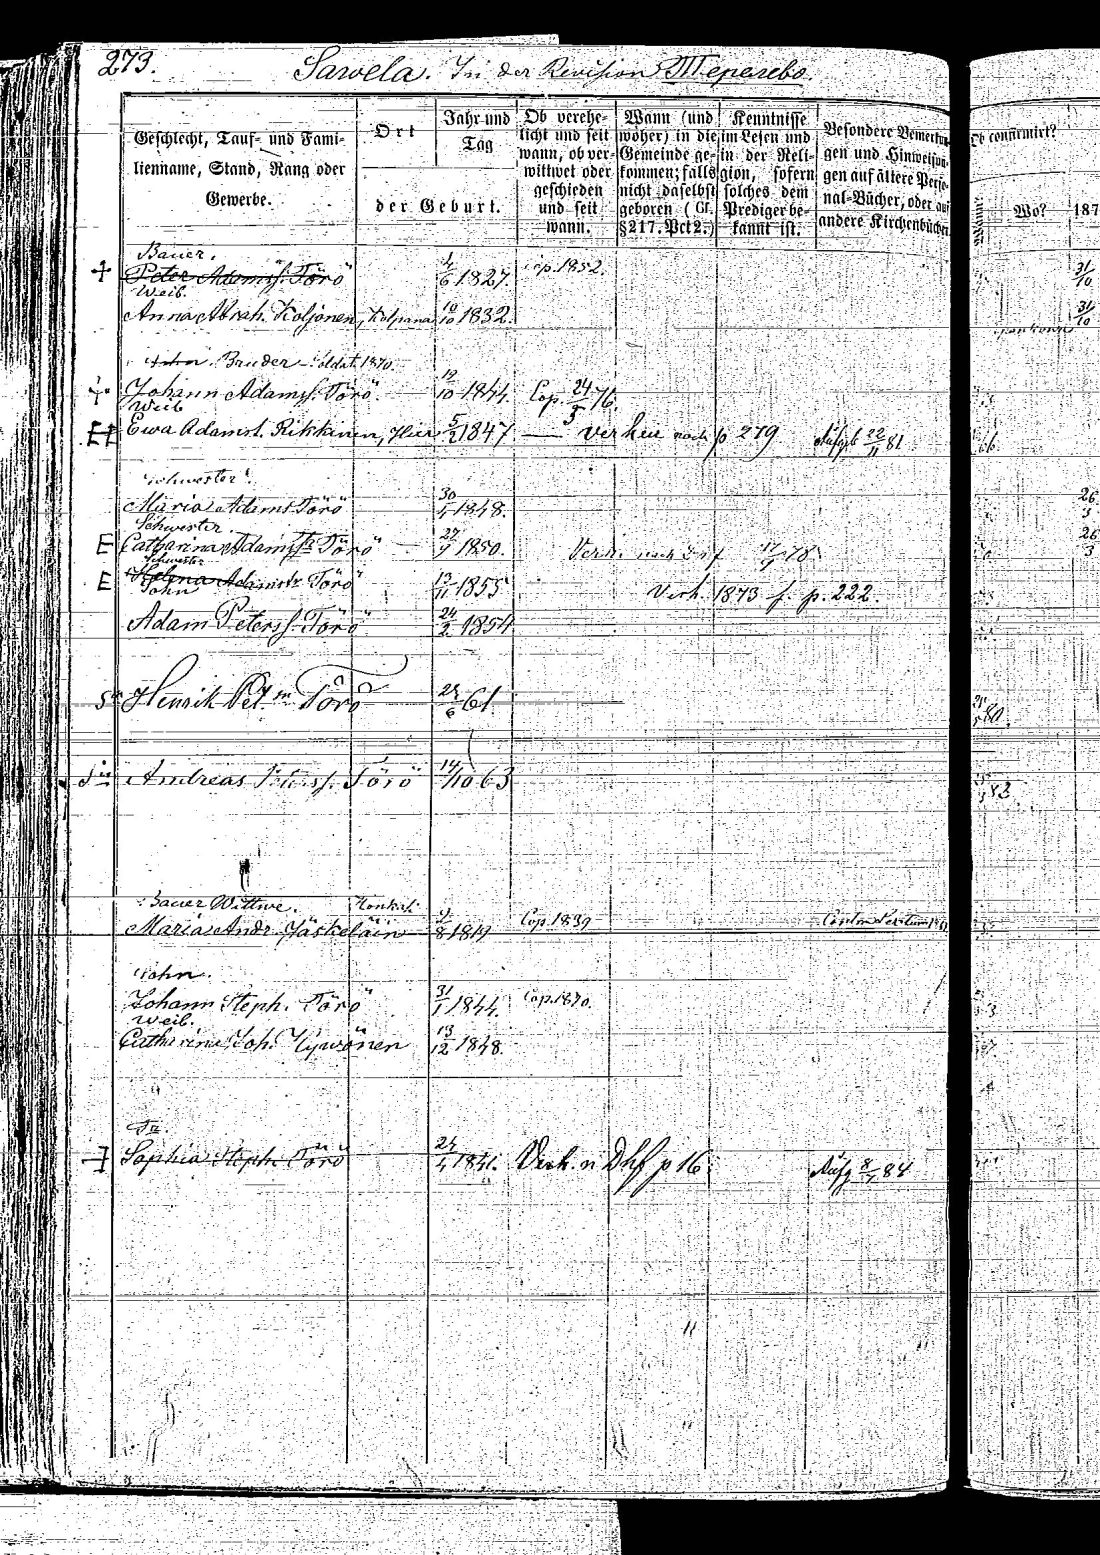 273.
Sawela. In der Revision Терелево.
Geschlecht, Tauf- und Fami-
lienname, Stand, Rang oder
Gewerbe.
Ort
Jahr und
Tag
der Geburt.
Ob verehe-
licht und seit
wann, ob ver-
wittwet oder
geschieden
und seit
wann.
Wann (und
woher) in die
Gemeinde ge-
kommen; falls
nicht daselbst
geboren (Gf.
§ 217. Pct 2.)
Kenntnisse
im Lesen und
in der Reli-
gion, sofern
solches dem
Prediger be-
kannt ist.
Besondere Bemerkun-
gen und Hinweisun-
gen auf ältere Perso-
nal-Bücher, oder auf
andere Kirchenbücher
Ob confirmirt?
Wo?
187
Bauer.
Peter Adamss. Törö 1/6 1827. Cop. 1852. 31/10
Weib.
Anna Abrah. Koljonen, Kolpana 10/10 1832. 31/10
Bruder Soldat 1870.
Johann Adamss. Törö 12/10 1844. Cop. 24/5 76.
Weib
Ewa Adamst. Rikkinen, Hier 5/2 1847 — verheu nach p 279 Aufg 22/11 81
Schwester.
Maria Adamst Törö 30/4 1848. 26/3
Schwester.
E Catharina Adamstr Törö 27/9 1850. Verh. nach 78 26/3
Schwester
E Helena Adamstr Törö 13/11 1855 Verh. 1873 f. p. 222.
Sohn
Adam Peterss. Törö 24/2 1854
Sn Henrik Petrn Törö 28/6 61 80.
Sn Andreas Peterss. Törö 14/10 63 82.
Bauer Wittwe.
Maria Andr. Jäskeläin 8 1819 Cop. 1839
Sohn.
Johann Steph. Törö 31/1 1844. Cop. 1870.
Weib.
Catharina Joh. Hywönen 13/12 1848.
Tr.
Sophia Steph. Törö 24/4 1841. Verh. n Dhf p 16. Aufg 8/1 84